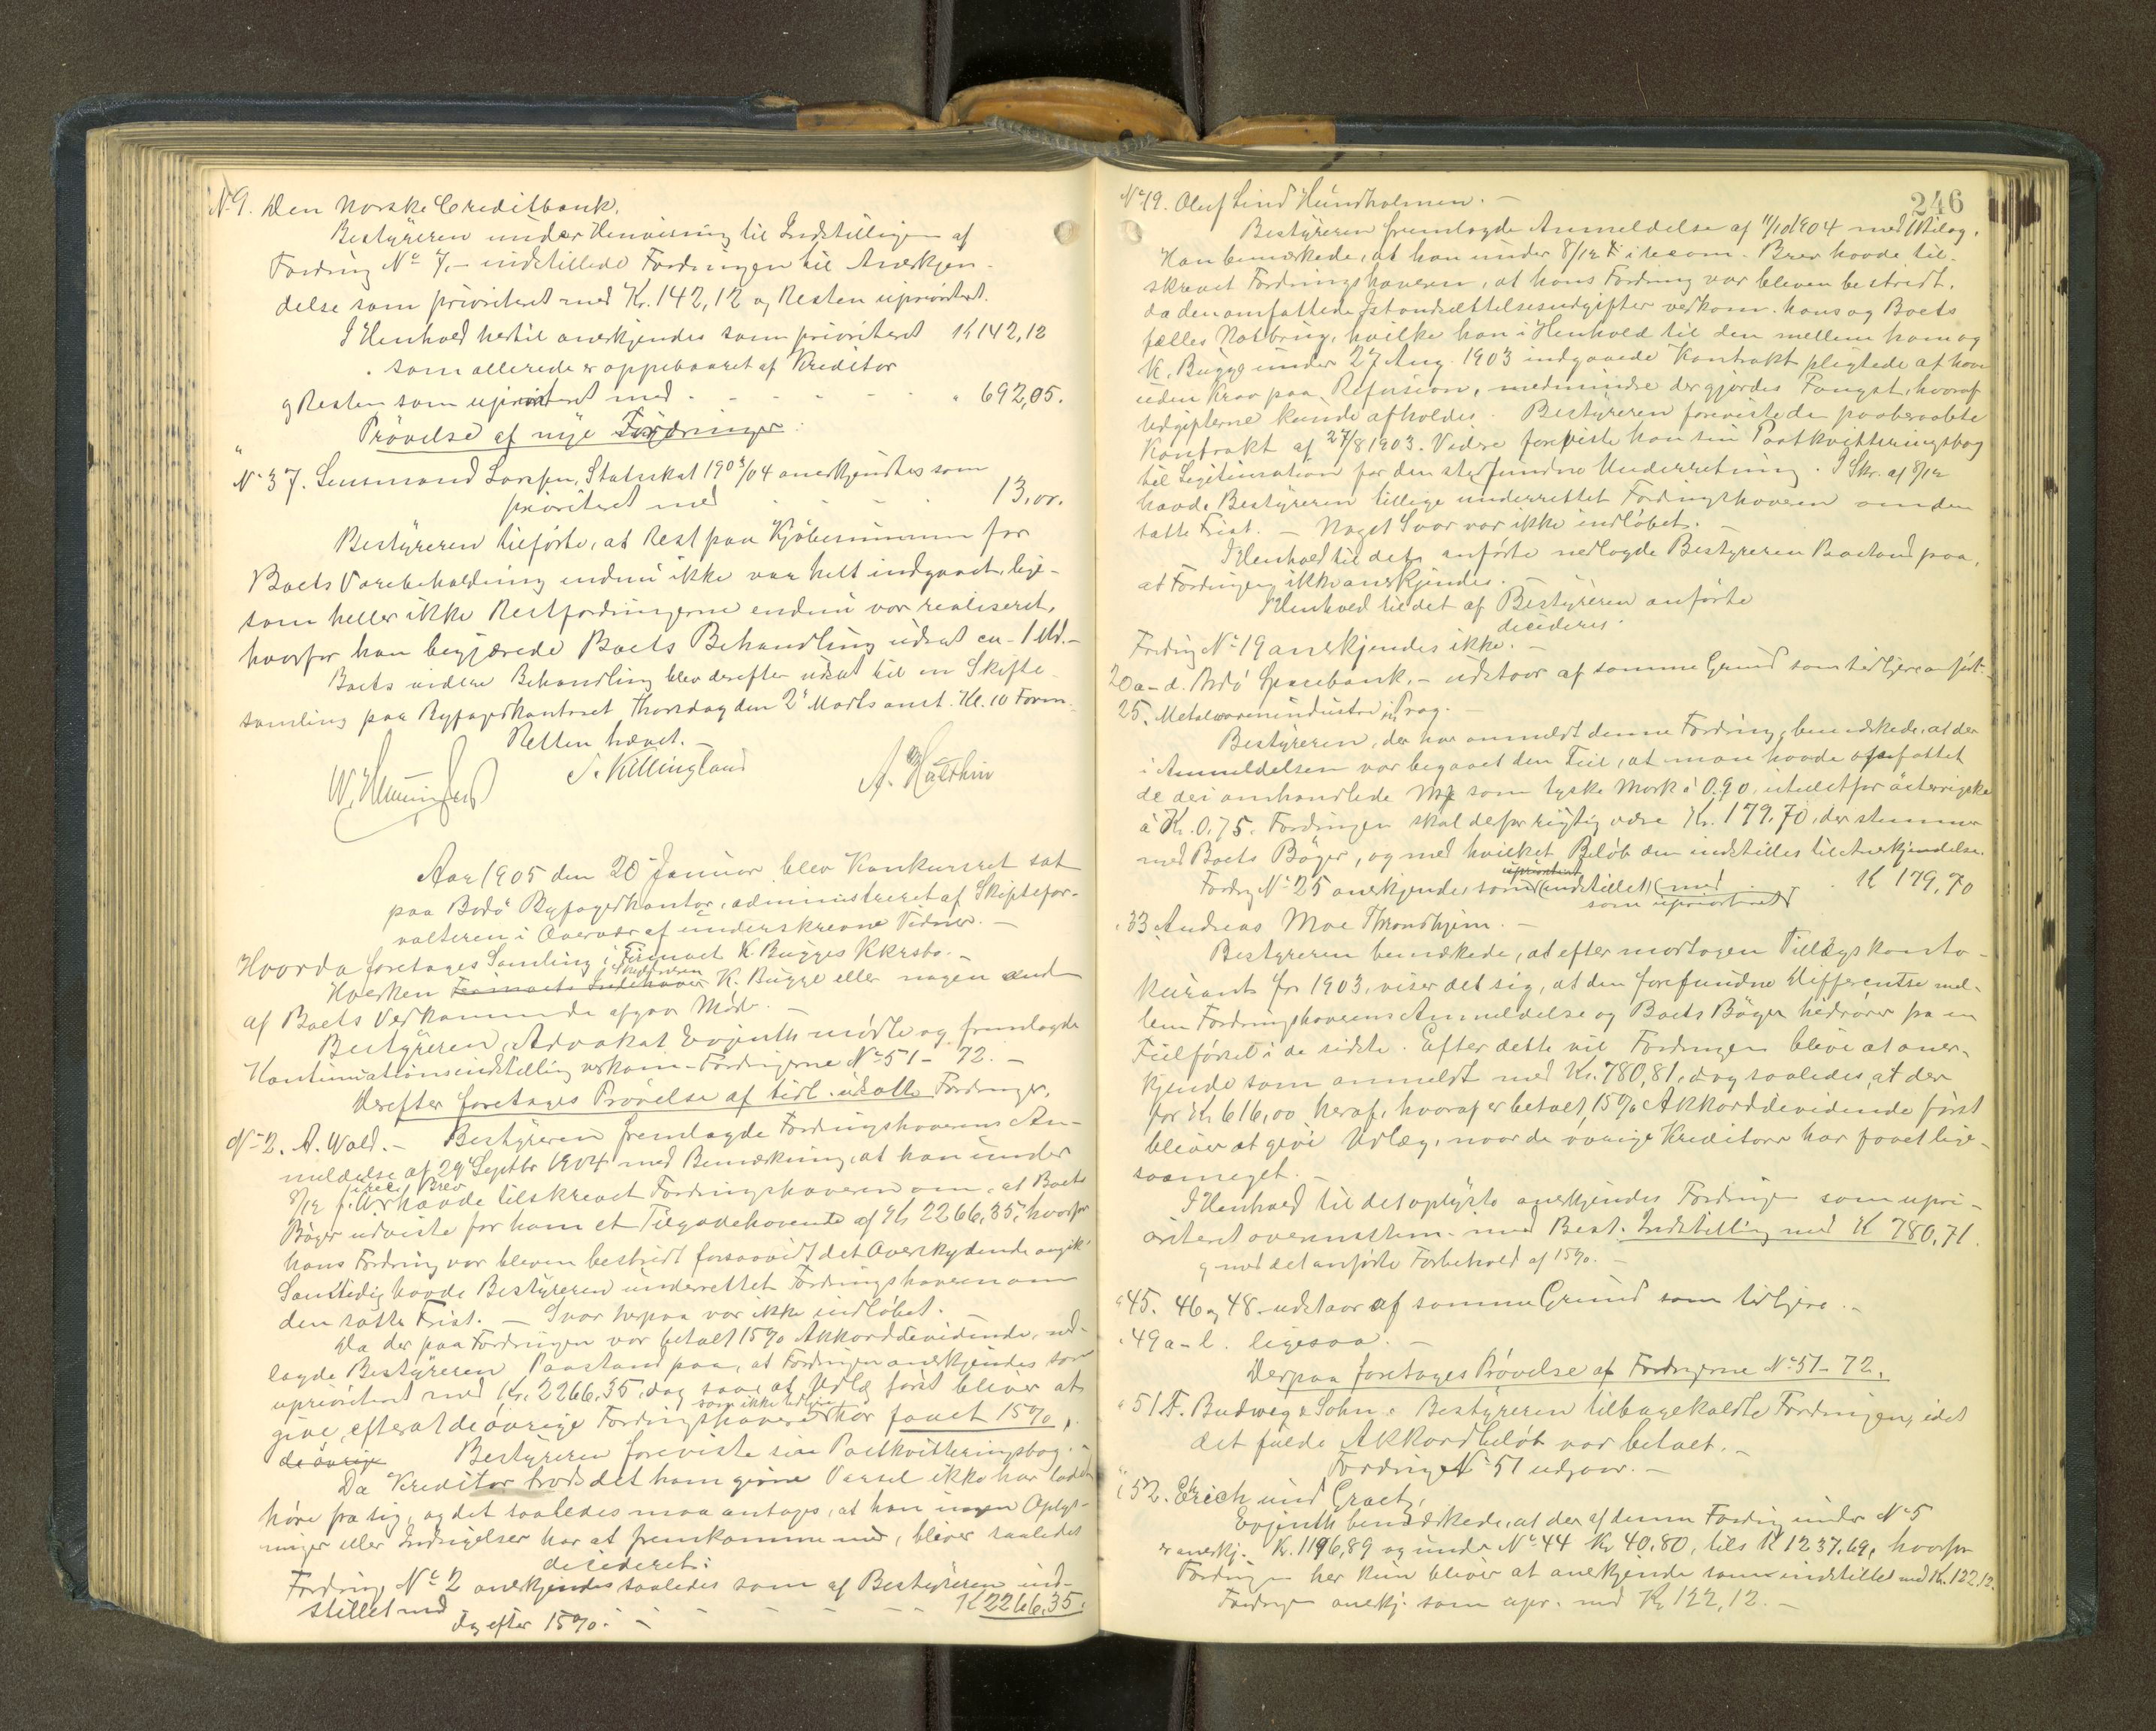 No 9. Den Norske Creditbank.
Bestyreren under Henvisning til Indstillingen af
Fordring No 7, – indstillede Fordringen til Anerkjen-
delse som prioriteret med Kr. 142,12 og Resten uprioritert.
I Henhold hertil anerkjendes som prioriteret K 142,12
som allerede er oppebaaret af Kreditor
og Resten som uprioriteret med - - - - " 692,05.
Prøvelse af nye Fordringer.
No 37. Lensmand Larssen, Statsskat 1903/04 anerkjendtes som
prioriteret med - - - 13,00.
Bestyreren tilførte, at Rest paa Kjøbesummen for
Boets Varebeholdning endnu ikke var helt indgaaet, lige-
som heller ikke Restfordringerne endnu var realiseret,
hvorfor han begjærede Boets Behandling udsat ca. 1 Md. –
Boets videre Behandling blev derefter udsat til en Skifte-
samling paa Byfogedkontoret Thorsdag den 2' Marts anst. Kl. 10 Form.
Retten hævet. –
S. Killingland
Aar 1905 den 20 Januar blev Konkursret sat
paa Bodø Byfogedkontor, administreret af Skiftefor-
valteren i Overvær af underskrevne Vidner. –
Hvorda foretages Samling i Firmaet K. Bugges Kkrsbo. –
Hverken Firmaets Indehaver K. Bugge eller nogen and
af Boets Vedkommende afgav Møde. –
Bestyreren, Advokat Evjenth mødte og fremlagde
Kontinuationsindstilling vedkom. Fordringerne No 51 - 72. –
Derefter foretages Prøvelse af tidl. udsatte Fordringer.
No 2. A. Wold. – Bestyreren fremlagde Fordringshaverens An-
meldelse af 29' Septbr 1904 med Bemærkning, at han under
8/12 f. A. i rec. Brev havde tilskrevet Fordringshaveren om, at Boets
Bøger udviste for ham et Tilgodehavende af K 2266,35, hvorfor
hans Fordring var bleven bestridt forsaavidt det Overskydende angik.
Samtidig havde Bestyreren underrettet Fordringshaveren om
den satte Frist. – Svar herpaa var ikke indløbet. –
Da der paa Fordringen var betalt 15% Akkorddevidende, ned-
lagde Bestyreren Paastand paa, at Fordringen anerkjendes som
uprioriteret med Kr. 2266,35, dog saa, at Udlæg først bliver at
give, efterat de øvrige Fordringshavere som ikke tidligere har faaet 15%,
de øvrige Bestyreren foreviste sin Postkvitteringsbog. –
Da Kreditor trods det ham givne Varsel ikke har ladet
høre fra sig, og det saaledes maa antages, at han ingen Oplys-
ninger eller Indsigelser har at fremkomme med, bliver saaledes
decideret:
Fordring No 2 anerkjendes saaledes som af Bestyreren ind-
stillet med - - - - - K 2266,35.
dog efter 15%. –
246
No 19. Oluf Lind Hundholmen. –
Bestyreren fremlagde Anmeldelse af 11/10 1904 med 1 Bilag.
Han bemærkede, at han under 8/12 i recom. Brev havde til-
skrevet Fordringshaveren, at hans Fordring var bleven bestridt,
da den omfattede Istandsættelsesudgifter vedkom. hans og Boets
fælles Notbrug, hvilke han i Henhold til den mellem ham og
K. Bugge under 27 Aug. 1903 indgaaede Kontrakt pligtede at have
uden Krav paa Refusion, medmindre der gjordes Fangst, hvoraf
Udgifterne kunde afholdes. Bestyreren foreviste den paaberaabte
Kontrakt af 27/8 1903. Videre foreviste han sin Postkvitteringsbog
til Legitimation for den stedfundne Underretning. I Skr. af 8/12
havde Bestyreren tillige underrettet Fordringshaveren om den
satte Frist. – Noget Svar var ikke indløbet. –
I Henhold til det anførte nedlagde Bestyreren Paastand paa,
at Fordringen ikke anerkjendes. –
I Henhold til det af Bestyreren anførte
decideres:
Fordring No 19 anerkjendes ikke. –
20 a - d. Bodø Sparebank, – udstaar af samme Grund som tidligere anført. –
25. Metalwarenindustrie in Prag. –
Bestyreren, der har anmeldt denne Fordring, bemærkede, at der
i Anmeldelsen var begaaet den Feil, at man havde opfattet
de deri omhandlede Mk som tyske Mark à 0.90, istedetfor østerrigske
à Kr. 0,75. Fordringen skal derfor rigtig være Kr. 179,70, der stemmer
med Boets Bøger, og med hvilket Beløb den indstilles til Anerkjendelse.
Fordrg No 25 anerkjendes som uprioritert (indstillet) (med - - K 179,70
som uprioriteret
33 Andreas Moe Throndhjem. –
Bestyreren bemærkede, at efter modtagen Tillægskonto-
kurant for 1903, viser det sig, at den forefundne Differentse mel-
lem Fordringshaverens Anmeldelse og Boets Bøger hidrører fra en
Feilførsel i de sidste. Efter dette vil Fordringen blive at aner-
kjende som anmeldt med Kr. 780,81, dog saaledes, at der
for Kr 616,00 heraf, hvoraf er betalt 15% Akkorddevidende først
bliver at give Udlæg, naar de øvrige Kreditorer har faaet lige-
saameget. –
I Henhold til det oplyste anerkjendes Fordringen som upri-
oriteret overensstem. med Best. Indstilling med K 780,71.
og med det anførte Forbehold af 15%. –
45. 46 og 48 udstaar af samme Grund som tidligere. –
49 a - l. ligesaa. –
Derpaa foretages Prøvelse af Fordringerne No 51 - 72.
51 F. Budweg & Sohn. Bestyreren tilbagekaldte Fordringen, idet
det fulde Akkordbeløb var betalt. –
Fordring No 51 udgaar. –
52. Ehrich und Graetz,
Evjenth bemærkede, at der af denne Fordring under No 5
er anerkj. Kr. 1196,89 og under No 44 Kr 40.80, tils K 1237,69, hvorfor
Fordringen her kun bliver at anerkjende som indstillet med Kr. 122.12.
Fordringen anerkj. som upr. med Kr 122,12. –